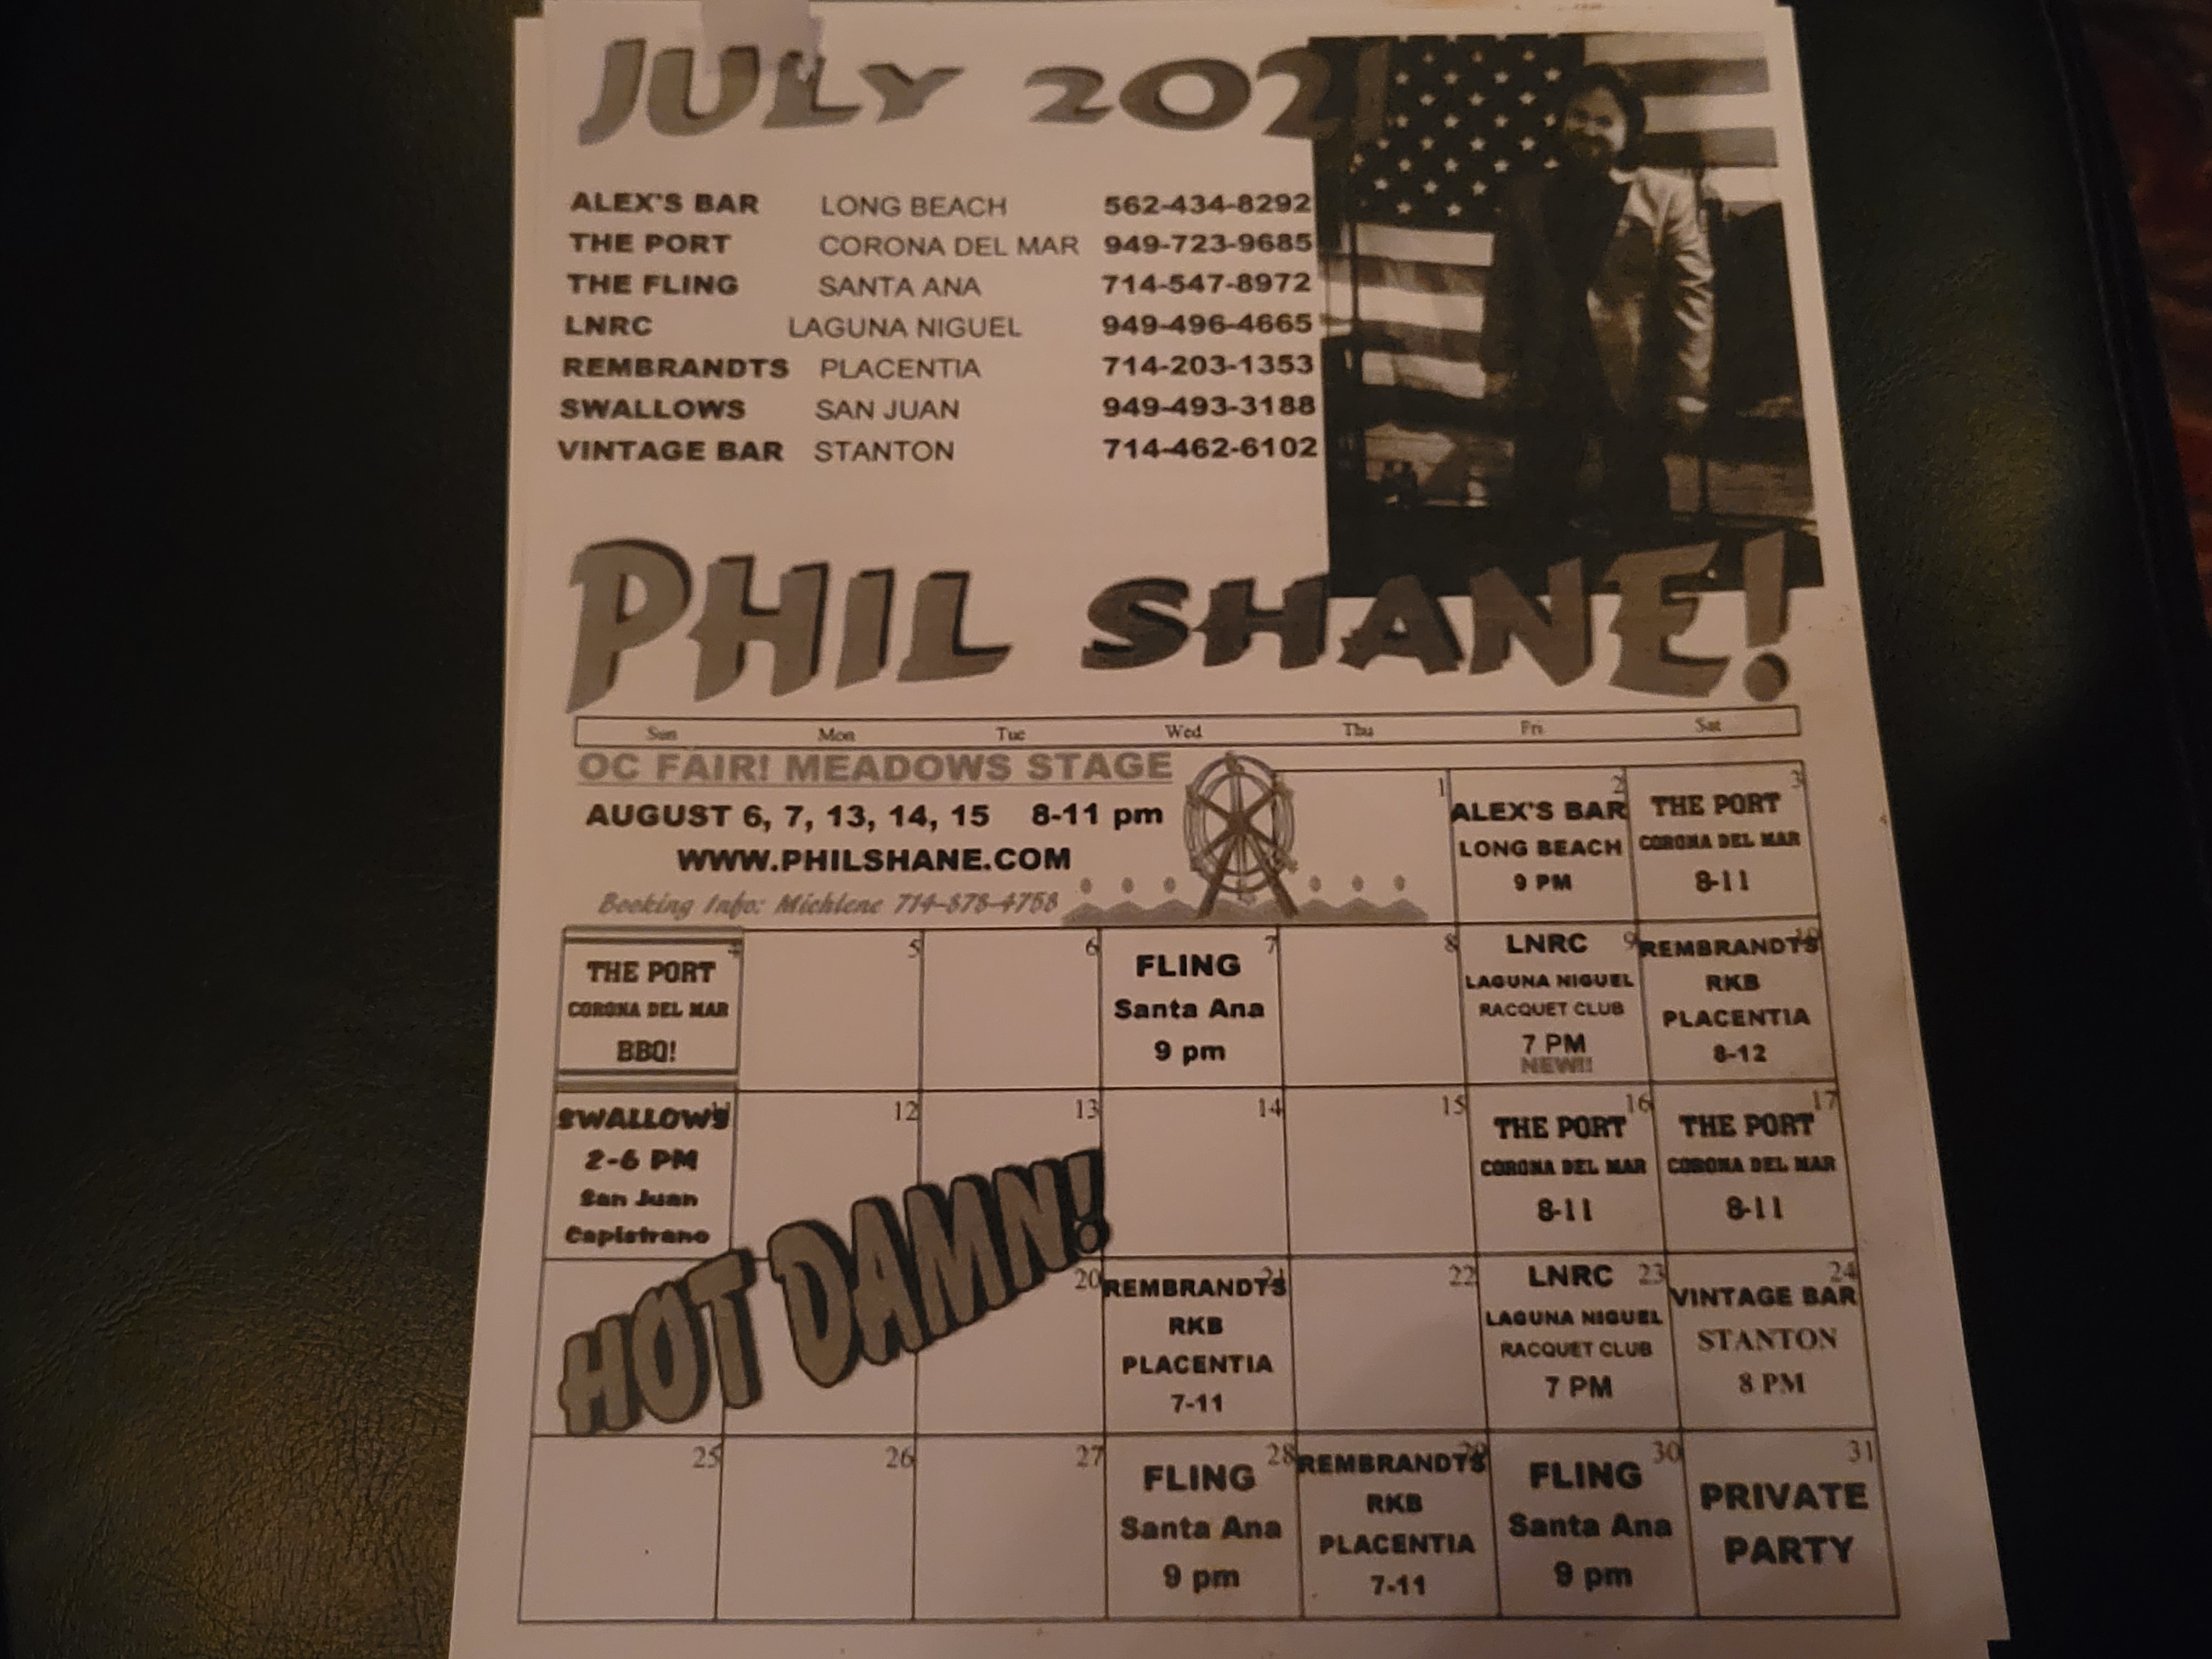 JULY 2021
ALEX'S BAR LONG BEACH 562-434-8292
THE PORT CORONA DEL MAR 949-723-9685
THE FLING SANTA ANA 714-547-8972
LNRC LAGUNA NIGUEL 949-496-4665
REMBRANDTS PLACENTIA 714-203-1353
SWALLOWS SAN JUAN 949-493-3188
VINTAGE BAR STANTON 714-462-6102
PHIL SHANE!
Sun Mon Tue Wed Thu Fri Sat
OC FAIR! MEADOWS STAGE
AUGUST 6, 7, 13, 14, 15 8-11 pm
WWW.PHILSHANE.COM
Booking Info: Michlene 714-878-4758
1
2
ALEX'S BAR
LONG BEACH
9 PM
3
THE PORT
CORONA DEL MAR
8-11
4
THE PORT
CORONA DEL MAR
BBQ!
5
6
7
FLING
Santa Ana
9 pm
8
9
LNRC
LAGUNA NIGUEL
RACQUET CLUB
7 PM
NEW!!
10
REMBRANDTS
RKB
PLACENTIA
8-12
11
SWALLOWS
2-6 PM
San Juan
Capistrano
12
13
14
15
16
THE PORT
CORONA DEL MAR
8-11
17
THE PORT
CORONA DEL MAR
8-11
HOT DAMN!
20
21
REMBRANDTS
RKB
PLACENTIA
7-11
22
23
LNRC
LAGUNA NIGUEL
RACQUET CLUB
7 PM
24
VINTAGE BAR
STANTON
8 PM
25
26
27
28
FLING
Santa Ana
9 pm
29
REMBRANDTS
RKB
PLACENTIA
7-11
30
FLING
Santa Ana
9 pm
31
PRIVATE
PARTY